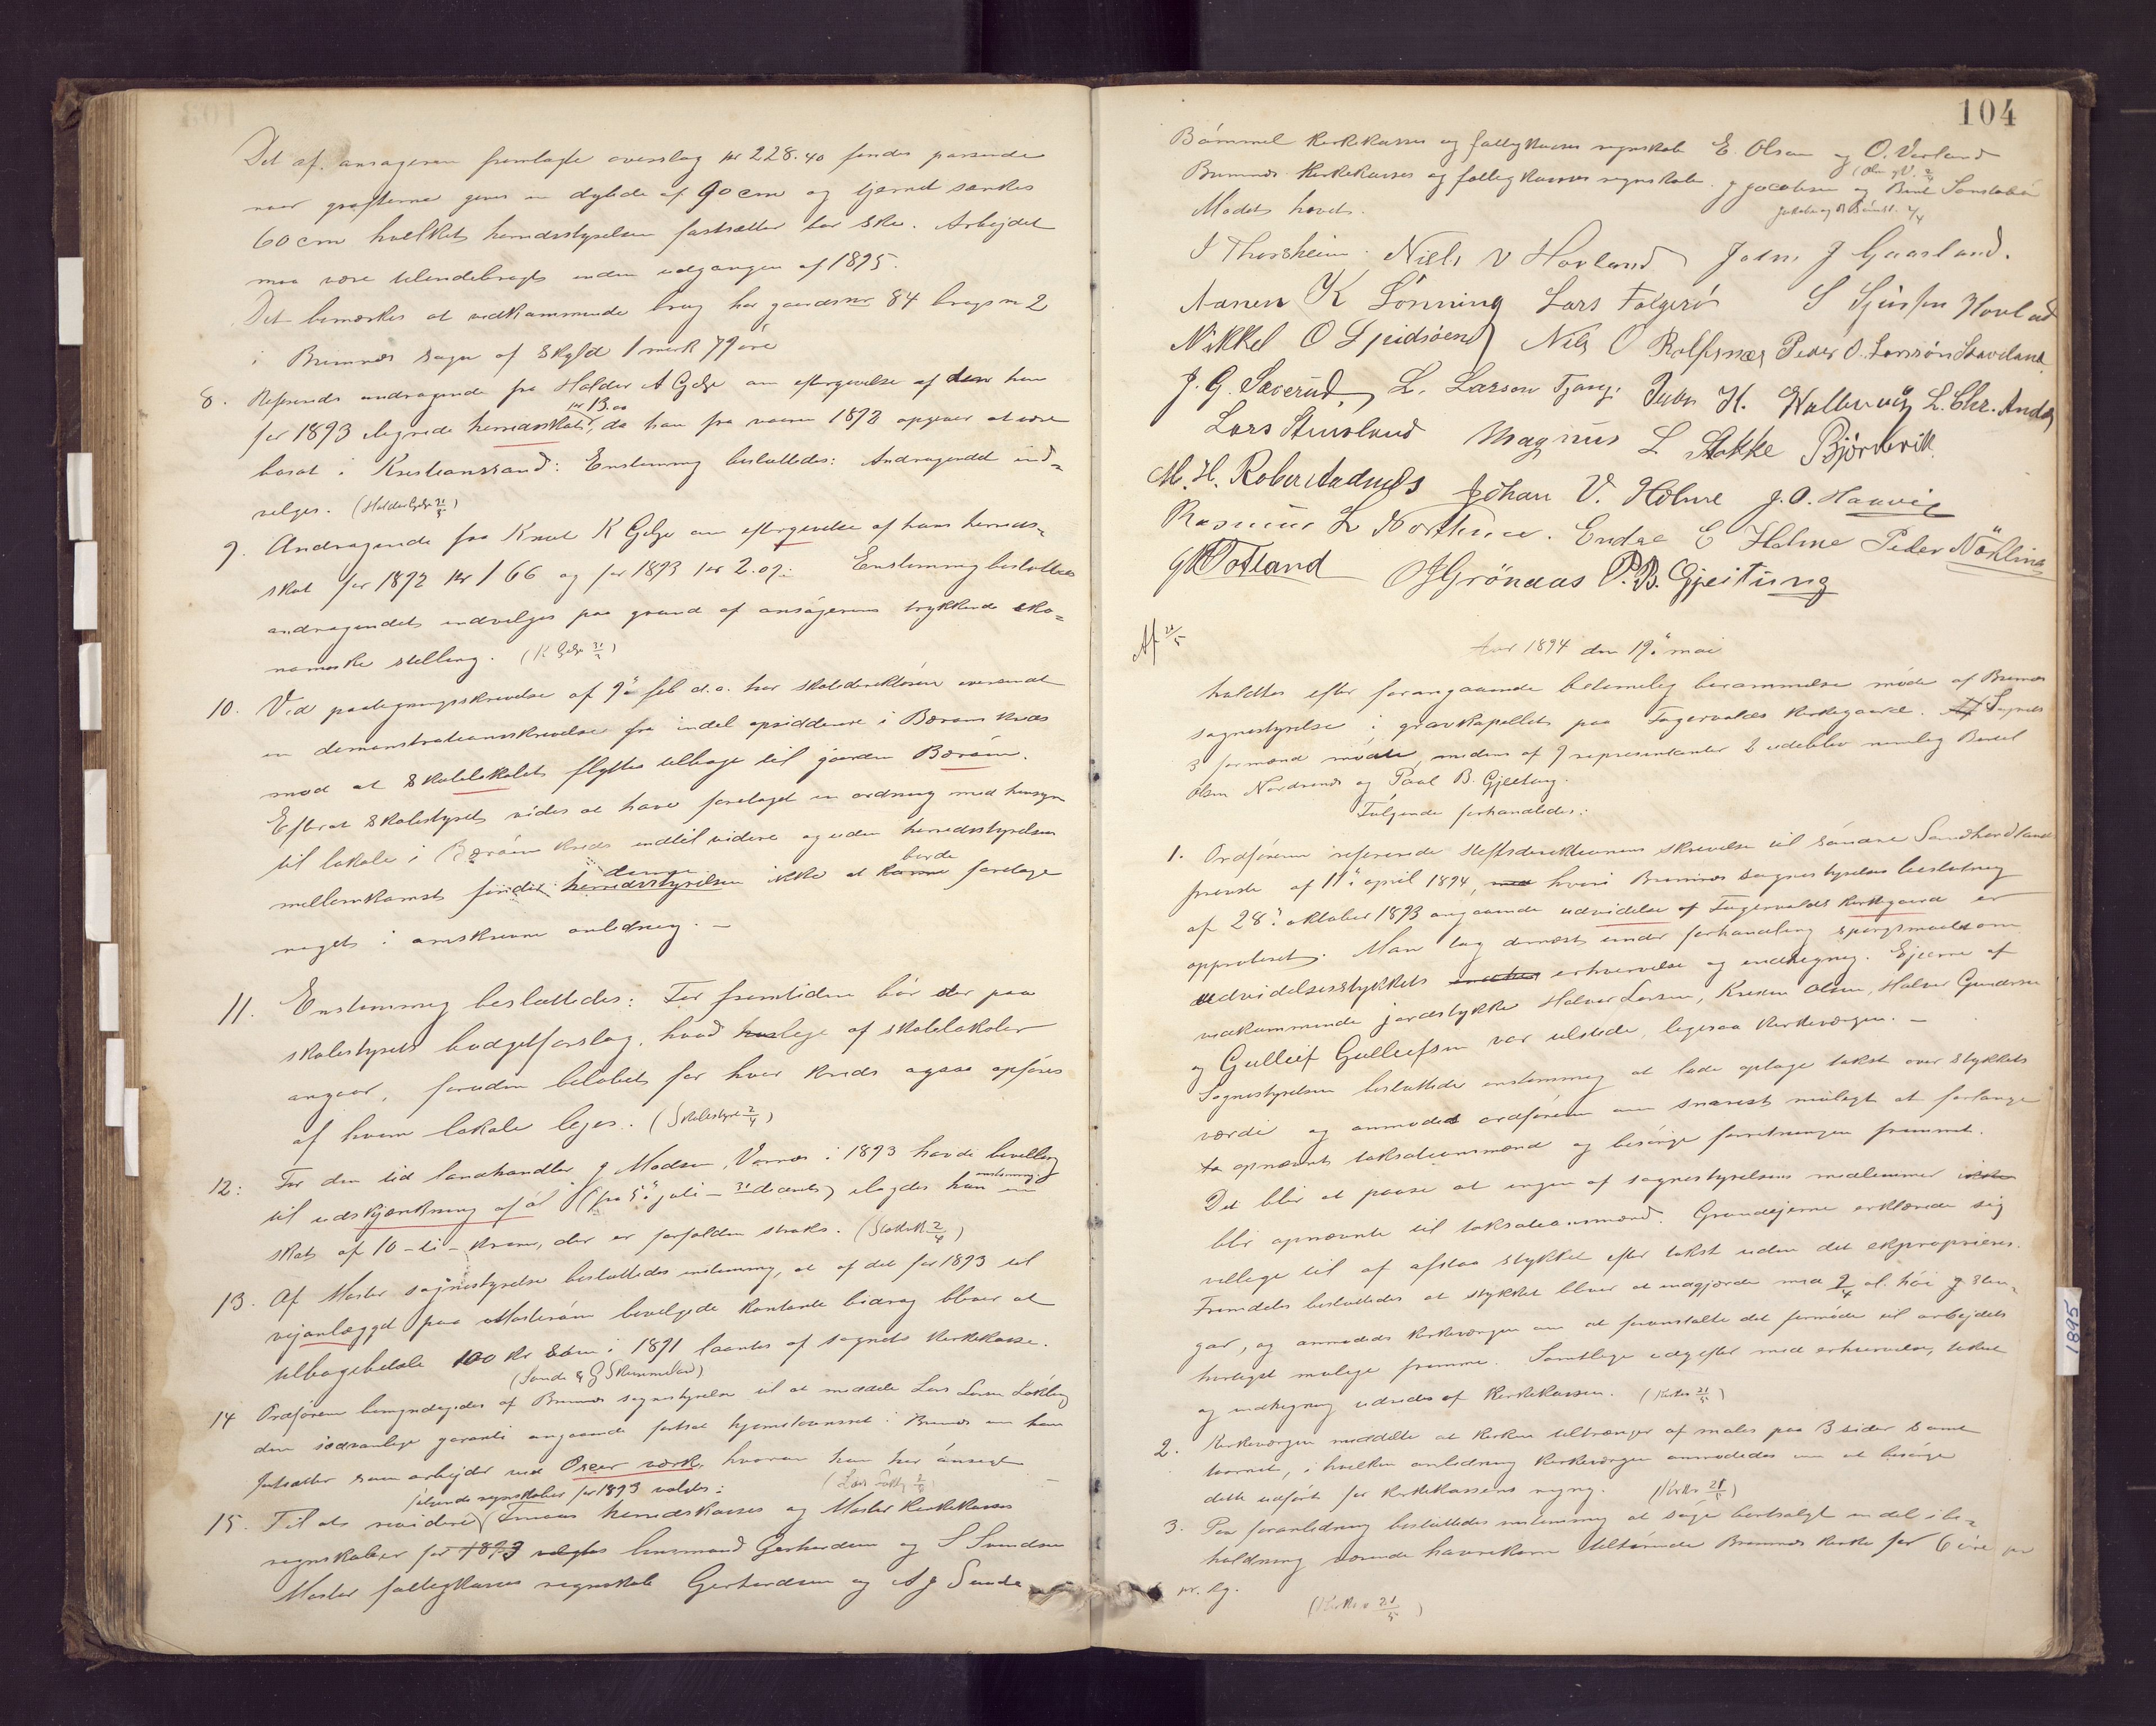 Det af ansøgeren fremlagte overslag kr 228.40 findes passende
naar grøfterne gives en dybde af 90 cm og tjernet sænkes
60 cm hvilket herredsstyrelsen fastsætter bør ske. Arbeidet
maa være tilendebragt inden udgangen af 1895.
Det bemærkes at vedkommende brug har gaardsnr 84 brugsnr 2
i Bremnes sogn af skyld 1 mark 79 øre
8. Refererdes andragende fra Halder A Gilje om eftergivelse af den ham
for 1893 ilignede herredsskat, kr 13.00 da han fra vaaren 1892 opgiver at være
bosat i Kristianssand: Enstemmig besluttedes: Andragendet ind-
vilges. (Halder Gilje 21/5)
9. Andragende fra Knut K Gilje om eftergivelse af hans herreds-
skat for 1892 kr 1 66 og for 1893 kr 2.07: Enstemmig besluttes
andragendet indvilges paa grund af ansøgerens trykkende øko-
nomiske stilling. (K Gilje 21/5)
10. Ved paategningsskrivelse af 9de feb d.a. har skoledirektøren oversendt
en demonstrationsskrivelse fra endel opsiddere i Børøens kreds
mod at skolelokalet flyttes tilbage til gaarden Børøen.
Efterat skolestyret vides at have foretaget en ordning med hensyn
til lokale i Børøens kreds indtil videre og uden herredsstyrelsens
mellemkomst finder herredsstyrelsen denne ikke at kunne burde foretage
noget i omskrevne anledning. —
11. Enstemmig besluttedes: For fremtiden bør der paa
skolestyrets budgetforslag, hvad husleje af skolelokaler
angaar, foruden beløbet for hver kreds ogsaa opføres
af hvem lokale lejes. (Skolestyret 2/4)
12: For den tid landhandler J Madsen, Vornes i 1893 havde bevilling
til udskjænkning af øl (fra 5te juli – 31 decemb) ilagdes han enstemmig en
skat af 10 – ti – kroner, der er forfalden straks. (Skattek 2/4)
13. Af Moster sognestyrelse besluttedes enstemmig, at af det for 1893 til
vejanlægget paa Mosterøen bevilgede kontante bidrag bliver at
tilbagebetale 100 kr som i 1891 laantes af sognets kirkekasse.
(Sunde & G Skimmeland)
14 Ordføreren bemyndigedes af Bremnes sognestyrelse til at meddele Lars Larsen Løkling
den sædvanlige garanti angaaende fortsat hjemstavnsret i Bremnes om han
fortsætter som arbejder ved Oscar værk, hvorom han har ansøgt
(Lars Løkling 2/4)
15. Til at revidere følgende regnskaber for 1893 valgtes: Finaas herredskasses og Moster kirkekasses
regnskaber for 1893 valgtes lensmand Gerhardsen og S Svendsen
Moster fattigkasses regnskab Gerhardsen og A J Sunde
104
Bømmel kirkekasses og fattigkasses regnskab E. Olsen og O. Vorland
(Olsen og V. 2/4)
Bremnes kirkekasses og fattigkasses regnskab J Jacobsen og Bent Sønstabø
Mødet hævet.
J Thorsheim. Niels N Hovland John J Gaasland.
Aanen K Lønning Lars Folgerø S Sjursen Hovland
Nikkel O Spidsøen Nils O Rolfsnes Peder O. Larssøn Stavland
J. G. Sæverud, L. Larsen Tjong. Iver H. Hallervig L. Chr. Anda
Lars Steinsland Magnus L Stokke Bjørkevik
M. H. Robberstadnes Johan V. Holme J. O. Haavig
Rasmus L Nortun. Endre E Holme Peder Nökling
GKTotland OJGrönaas P. B. Gjeitung
Af 21/5
Aar 1894 den 19de mai
holdtes efter forangaaende betimelig berammelse møde af Bremnes
sognestyrelse i gravkapellet paa Fagervolds kirkegaard. Af Sognets
3 formænd mødte, medens af 9 repræsentanter 2 udeblev nemlig Bertel
Olsen Nordrenes og Paul B. Gjeitung.
Følgende forhandledes:
1. Ordføreren refererede stiftsdirektionens skrivelse til søndre Søndhordlands
provsti af 11te april 1894, hvori Bremnes sognestyrelses beslutning
af 28de oktober 1893 angaaende udvidelse af Fagervolds kirkegaard er
approberet. Man tog dernæst under forhandling spørgsmaalet om
udvidelsesstykkets erhvervelse og indhegning. Ejerne af
vedkommende jordstykke Halvor Larsen, Kristen Olsen, Halvor Gundersen
og Gulleif Gulleifsen var tilstede, ligesaa kirkeværgen. —
Sognestyrelsen besluttede enstemmig at lade optage takst over stykkets
værdi og anmodet ordføreren om snarest muligt at forlange
opnævnt taksationsmænd og besørge forretningen fremmet.
Det blir at paase at ingen af sognestyrelsens medlemmer
blir opnævnte til taksationsmænd. Grundejerne erklærede sig
villige til at afstaa stykket efter takst uden det exproprieres.
Fremdeles besluttedes at stykket bliver at indgjærde med 9/4 al. høi sten-
gar, og anmodedes kirkeværgen om at foranstalte det fornødne til arbejdets
hurtigst mulige fremme. Samtlige udgifter med erhvervelse, takst
og indhegning udredes af kirkekassen. (Kirkev 21/5)
2. Kirkeværgen meddelte at kirken tiltrænger at males paa 3 sider samt
taarnet, i hvilken anledning kirkeværgen anmodedes om at besørge
dette udført for kirkekassens regning. (Kirkev 21/5)
3. Paa foranledning besluttedes enstemmig at søge bortsolgt en del i be-
holdning værende havrekorn tilhørende Bremnes kirke for 6 øre pr
pr. kg.
(Kirkev 21/5)
1895